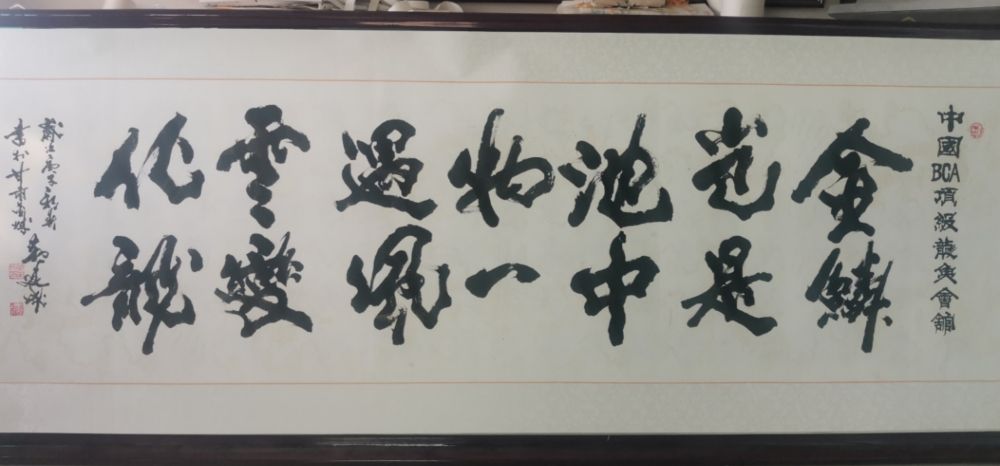 中國BCA頂級龍魚會舘
金鱗
豈是
池中
物一
遇風
雲變
化龍